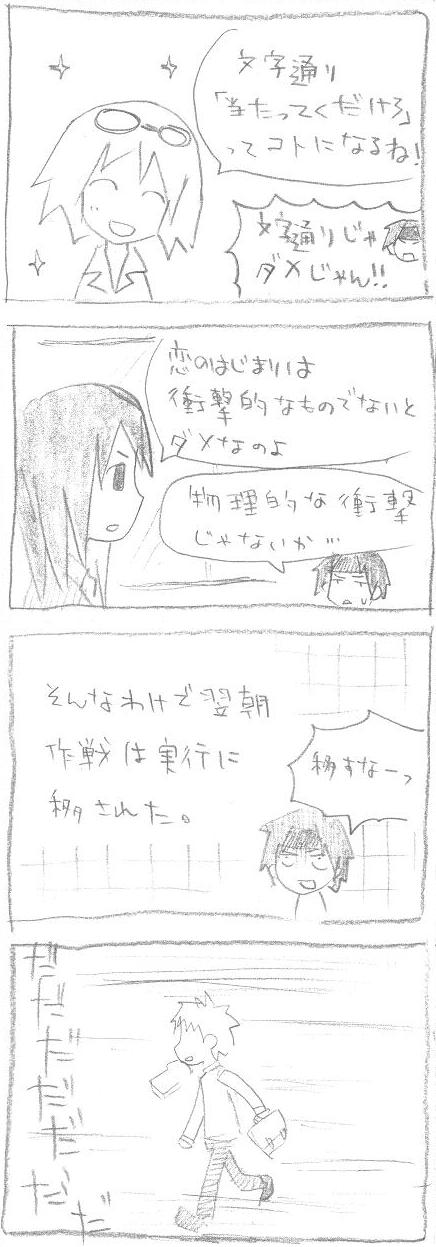 文字通り
「当たってくだけろ」
ってコトになるね!
文字通りじゃ
ダメじゃん!!
恋のはじまりは
衝撃的なものでないと
ダメなのよ
物理的な衝撃
じゃないか…
そんなわけで翌朝
作戦は実行に
移された。
移すなーっ
だだだだだだだ